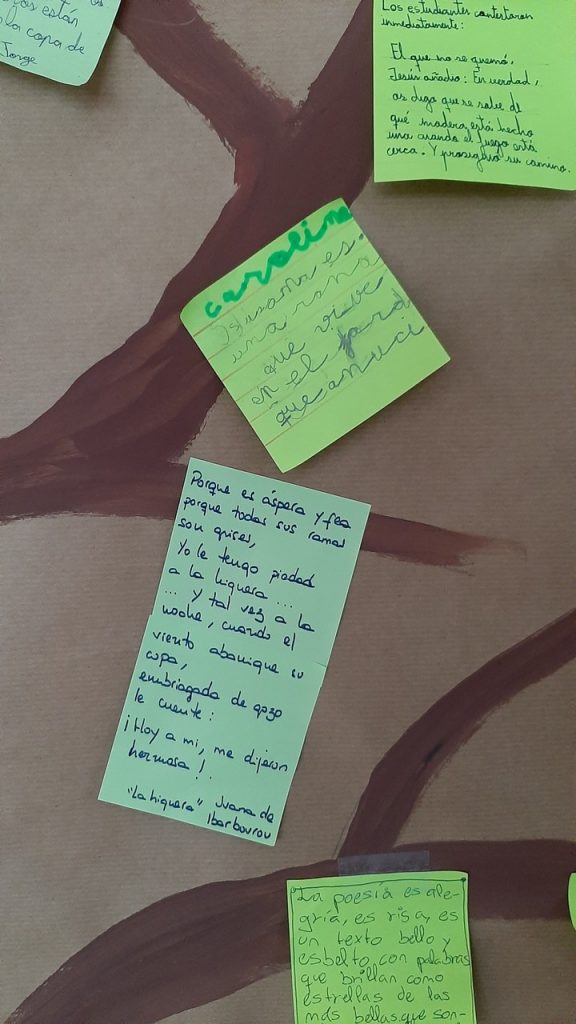 están
la copa de
Jorge
Los estudiantes contestaron
inmediatamente:
El que no se quemó.
Jesús añadio: En verdad,
os digo que se sabe de
qué madera está hecho
uno cuando el fuego está
cerca. Y prosiguió su camino.
carolina
es
una rana
que vive
en el jard
que
Porque es áspera y fea
porque todas sus ramas
son grises,
Yo le tengo piedad
a la higuera ...
... y tal vez a la
noche, cuando el
viento abanique su
copa,
embriagada de gozo
le cuente:
¡Hoy a mi, me dijeron
hermosa!.
"La higuera" Juana de
Ibarbourou
La poesía es ale-
gría, es risa, es
un texto bello y
esbelto, con palabras
que brillan como
estrellas de las
más bellas, que son-